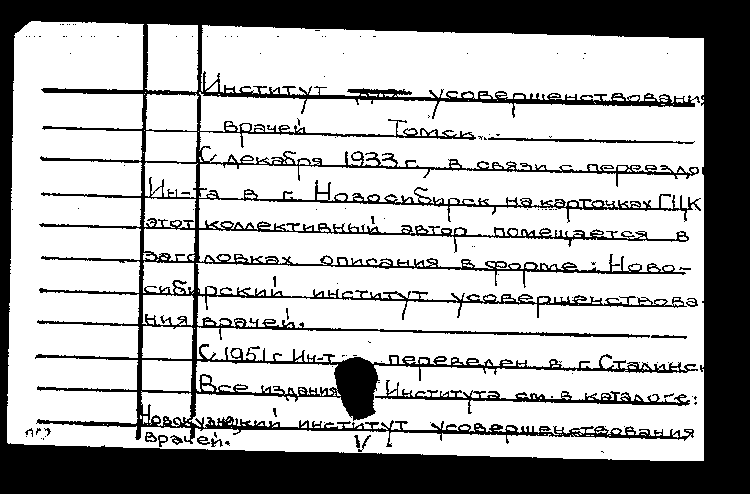 Институт усовершенствования
врачей Томск.
С декабря 1933 г., в связи с переездо
Ин-та в г. Новосибирск, на карточках ГЦК
этот коллективный автор помещается в
заголовках описания в форме: Ново-
сибирский институт усовершенствова-
ния врачей.
С 1951 г Ин-т переведен в г. Сталинск
Все издания Института см. в каталоге:
Новокузнецкий институт усовершенствования
врачей.
V